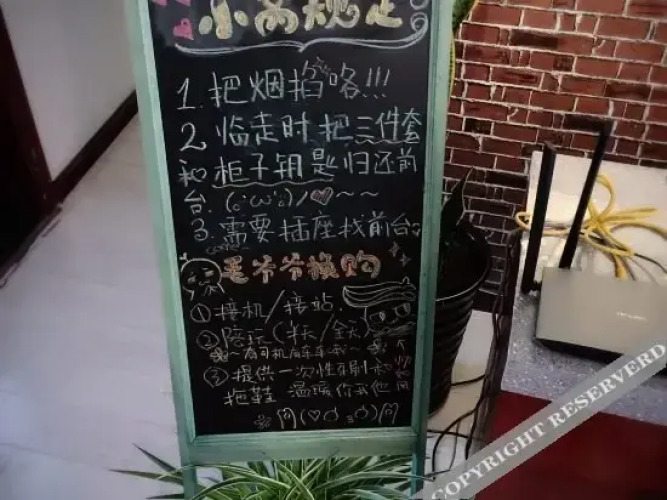 小窝规定
1. 把烟掐咯!!!
2. 临走时把三件套
和柜子钥匙归还前
台.(๑´ω`๑)/♥~~
3. 需要插座找前台。
毛爷爷换购
① 接机/接站
② 陪玩(半天/全天)
~有司机有车车哦~
③ 提供一次性牙刷和
拖鞋 温暖你我他
COPYRIGHT RESERVERD